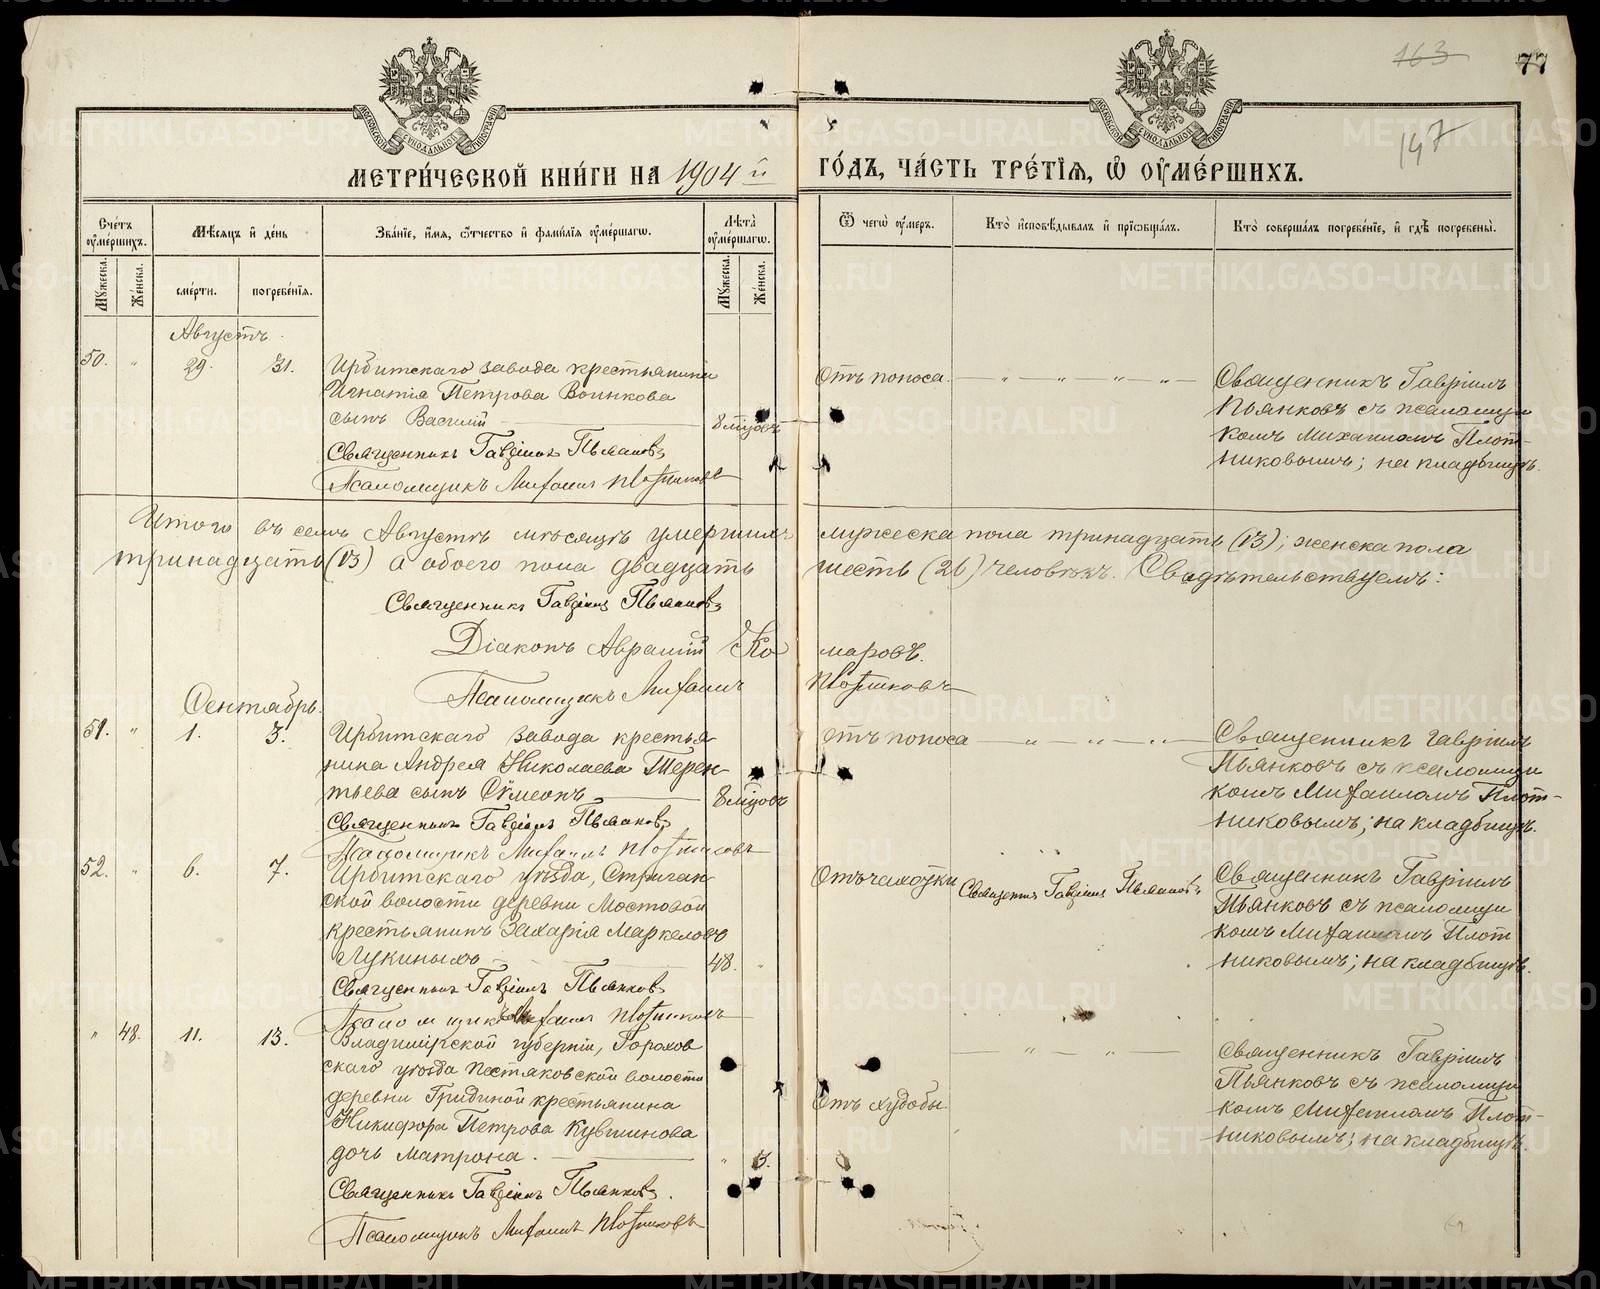 163
77
147
МОСКОВСКОЙ СѴНОДАЛЬНОЙ ТИПОГРАФІИ
МОСКОВСКОЙ СѴНОДАЛЬНОЙ ТИПОГРАФІИ
МЕТРИ́ЧЕСКОЙ КНИ́ГИ НА 1904 й ГО́ДЪ, ЧА́СТЬ ТРЕ́ТІѦ, Ѽ ОУ҆МЕ́РШИХЪ.
Сче́тъ оу҆ме́ршихъ.
Мѣ́сяцъ и҆ де́нь
Зва́нїе, и҆́мя, ѻ҆́тчество и҆ фами́лїя оу҆ме́ршагѡ.
Лѣ́та оу҆ме́ршагѡ.
Ѿ чегѡ̀ оу҆́меръ.
Кто̀ и҆сповѣ́дывалъ и҆ прїѡбща́лъ.
Кто̀ соверша́лъ погребе́нїе, и҆ гдѣ̀ погребены̀.
Мꙋ́жеска.
Же́нска.
сме́рти.
погребе́нїя.
Мꙋ́жеска.
Же́нска.
Августъ.
50. " 29. 31. Ирбитскаго завода крестьянина
Игнатія Петрова Воинкова
сынъ Василій 8 мѣцовъ
Священникъ Гавріилъ Пьянковъ
Псаломщикъ Михаилъ Плотниковъ
Отъ поноса. — " — " — " — " —
Священникъ Гавріилъ
Пьянковъ съ псаломщи
комъ Михаиломъ Плот-
никовымъ; на кладбищѣ.
Итого въ семъ Августѣ мѣсяцѣ умершихъ мужеска пола тринадцать (13); женска пола
тринадцать (13) а обоего пола двадцать шесть (26) человѣкъ. Свидѣтельствуемъ:
Священникъ Гавріилъ Пьянковъ
Діаконъ Аврамій Комаровъ.
Псаломщикъ Михаилъ Плотниковъ
Сентябрь.
51. " 1. 3. Ирбитскаго завода крестья
нина Андрея Николаева Терен
тьева сынъ Сѵмеонъ 8 мѣцовъ
Священникъ Гавріилъ Пьянковъ
Псаломщикъ Михаилъ Плотниковъ
Отъ поноса — " — " — " —
Священникъ Гавріилъ
Пьянковъ съ псаломщи
комъ Михаиломъ Плот-
никовымъ; на кладбищѣ.
52. " 6. 7. Ирбитскаго уѣзда, Стриган
ской волости деревни Мостовой
крестьянинъ Захарія Маркеловъ
Лукиныхъ 48. "
Священникъ Гавріилъ Пьянковъ
Псаломщикъ Михаилъ Плотниковъ
Отъ чахотки
Священникъ Гавріилъ Пьянковъ
Священникъ Гавріилъ
Пьянковъ съ псаломщи
комъ Михаиломъ Плот
никовымъ; на кладбищѣ.
" 48. 11. 13. Владимірской губерніи, Горохов
скаго уѣзда Пестяковской волости
деревни Гридиной крестьянина
Никифора Петрова Кувшинова
дочь Матрона. " 3.
Священникъ Гавріилъ Пьянковъ.
Псаломщикъ Михаилъ Плотниковъ
Отъ худобы.
— " — " —
Священникъ Гавріилъ
Пьянковъ съ псаломщи
комъ Михаиломъ Плот-
никовымъ; на кладбищѣ.
METRIKI.GASO-URAL.RU